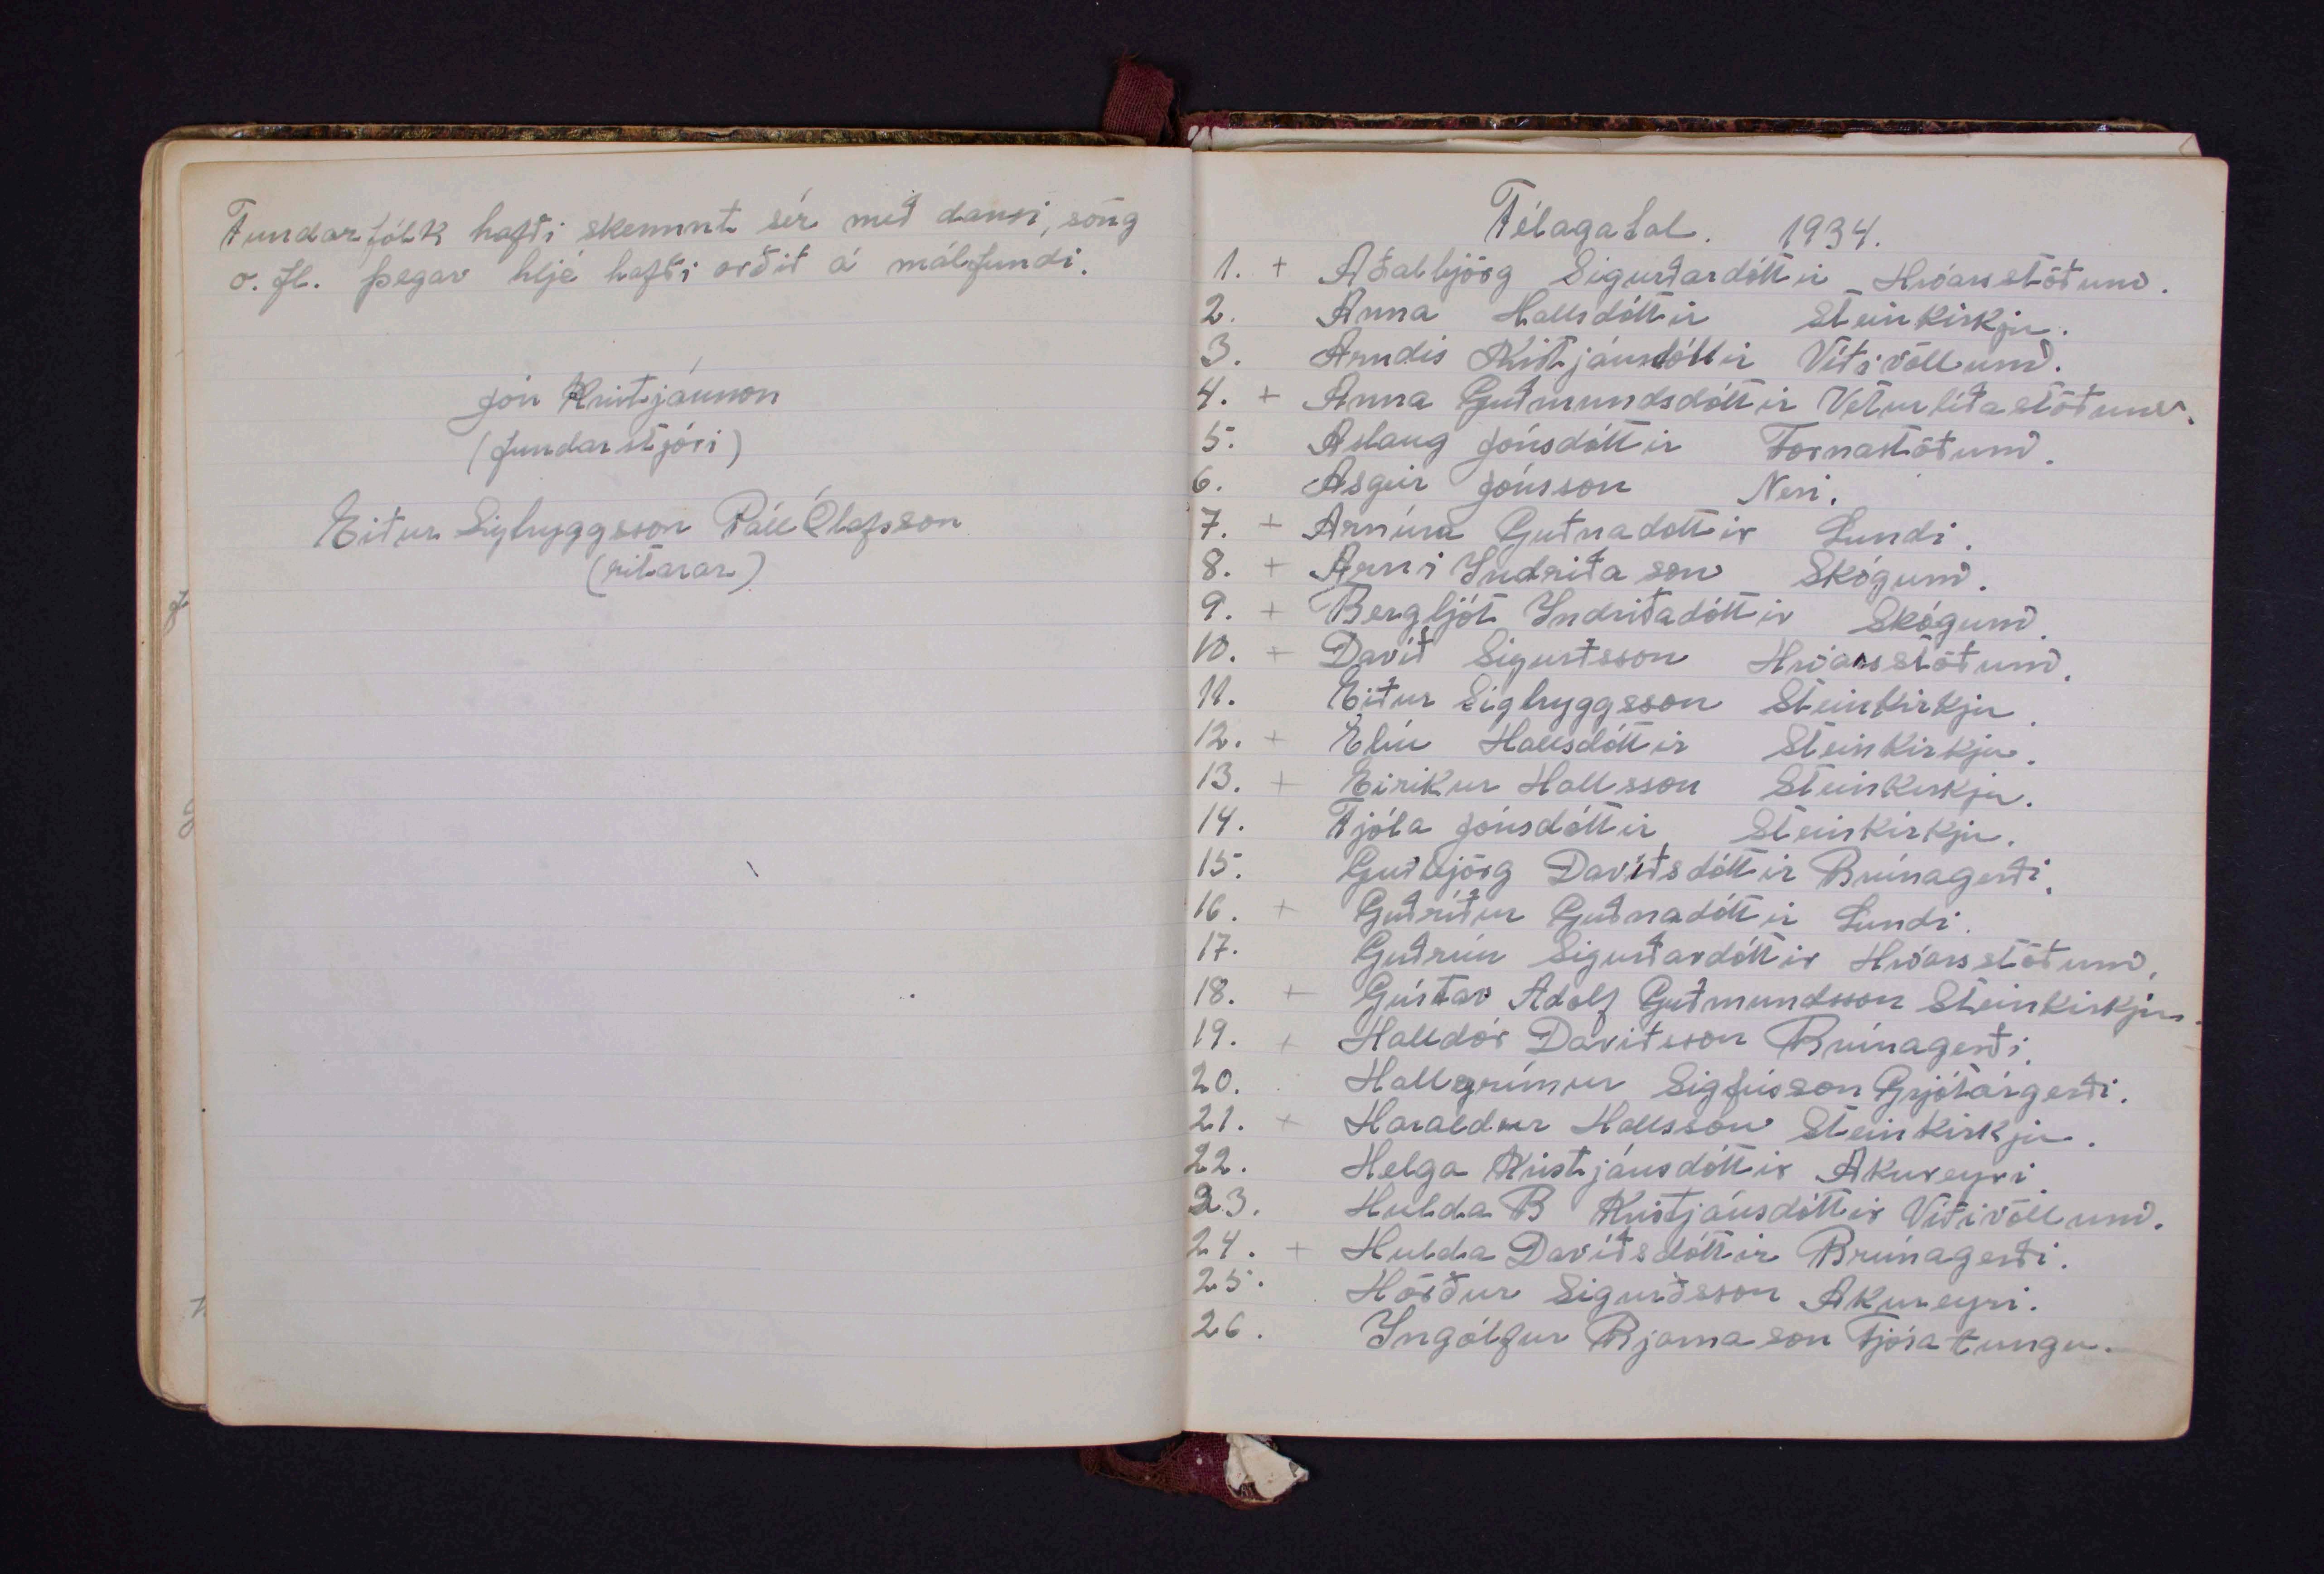 Fundarfólk hafði skemmt sér með dansi, söng
o. fl. þegar hljé hafði orðið á málfundi.
Jón Kristjánsson
(fundarstjóri)
Eiður Sigtryggsson Páll Ólafsson
(ritarar)
Félagatal. 1934.
1. + Aðalbjörg Sigurðardóttir Hróarsstöðum.
2. Anna Hallsdóttir Steinkirkju.
3. Arndís Kristjánsdóttir Víðivöllum.
4. + Anna Guðmundsdóttir Veturliðastöðum.
5. Áslaug Jónsdóttir Fornastöðum.
6. Ásgeir Jónsson Nesi.
7. + Arnína Guðnadottir Lundi.
8. + Árni Indriðason Skógum.
9. + Bergljót Indriðadóttir Skógum.
10. + Davíð Sigurðsson Hróarsstöðum.
11. Eiður Sigtryggsson Steinkirkju.
12. + Elín Hallsdóttir Steinkirkju.
13. + Eirikur Hallsson Steinkirkju.
14. Fjóla Jónsdóttir Steinkirkju.
15. Guðbjörg Davíðsdóttir Brúnagerði.
16. + Guðríður Guðnadóttir Lundi.
17. Guðrún Sigurðardóttir Hróarsstöðum.
18. + Gústav Adolf Guðmundsson Steinkirkju.
19. + Halldór Davíðsson Brúnagerði.
20. Hallgrímur Sigfússon Grjótárgerði.
21. + Haraldur Hallsson Steinkirkju.
22. Helga Kristjánsdóttir Akureyri
23. Hulda B Kristjánsdóttir Víðivöllum.
24. + Hulda Davíðsdóttir Brúnagerði.
25. Hörður Sigurðsson Akureyri.
26. Ingólfur Bjarnason Fjósatungu.